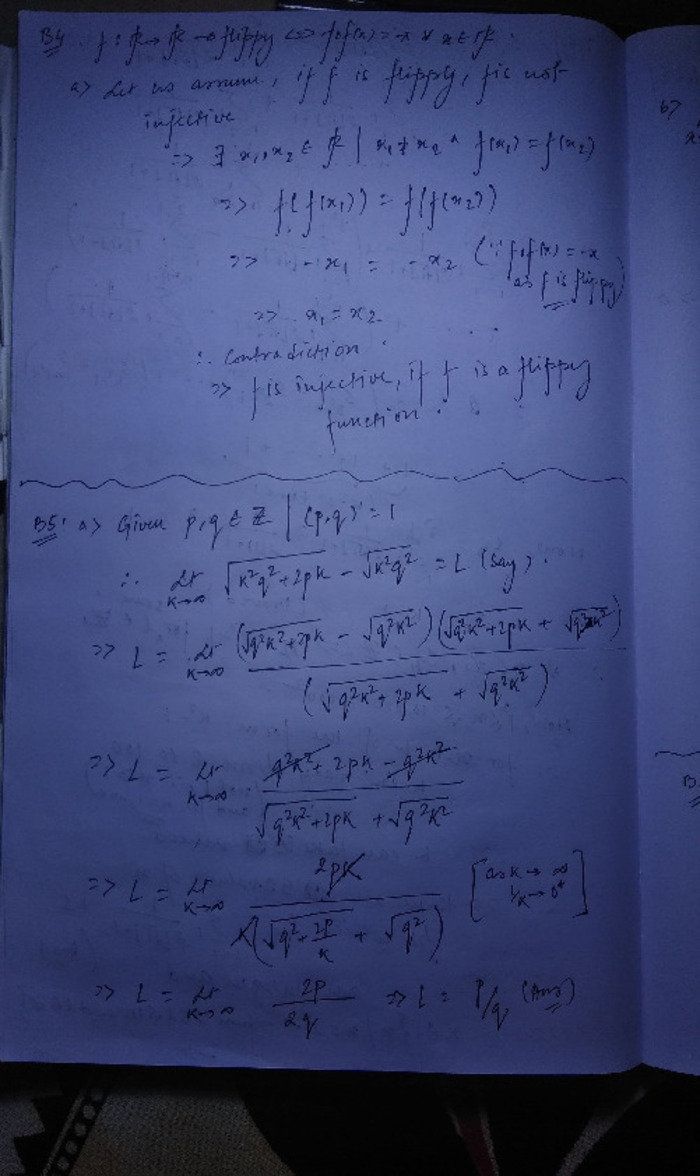 B4 f : R → R → flippy <=> f(f(x)) = -x ∀ x ∈ R.
a> Let us assume, if f is flippy, f is not
injective
=> ∃ x₁, x₂ ∈ R | x₁ ≠ x₂ ^ f(x₁) = f(x₂)
=> f(f(x₁)) = f(f(x₂))
=> -x₁ = -x₂ (∵ f(f(x)) = -x
as f is flippy)
=> x₁ = x₂
∴ Contradiction.
=> f is injective, if f is a flippy
function.
B5. a> Given p, q ∈ Z | (p,q) = 1
∴ Lt K→∞ √(K²q²+2pK) - √(K²q²) = L (Say).
=> L = Lt K→∞ (√(q²K²+2pK) - √(q²K²))(√(q²K²+2pK) + √(q²K²)) / (√(q²K²+2pK) + √(q²K²))
=> L = Lt K→∞ (q²K² + 2pK - q²K²) / (√(q²K²+2pK) + √(q²K²))
=> L = Lt K→∞ 2pK / K(√(q²+2p/K) + √(q²)) [as K → ∞ 1/K → 0⁺]
=> L = Lt K→∞ 2p/2q => L = p/q (Ans)
6>
x
B.